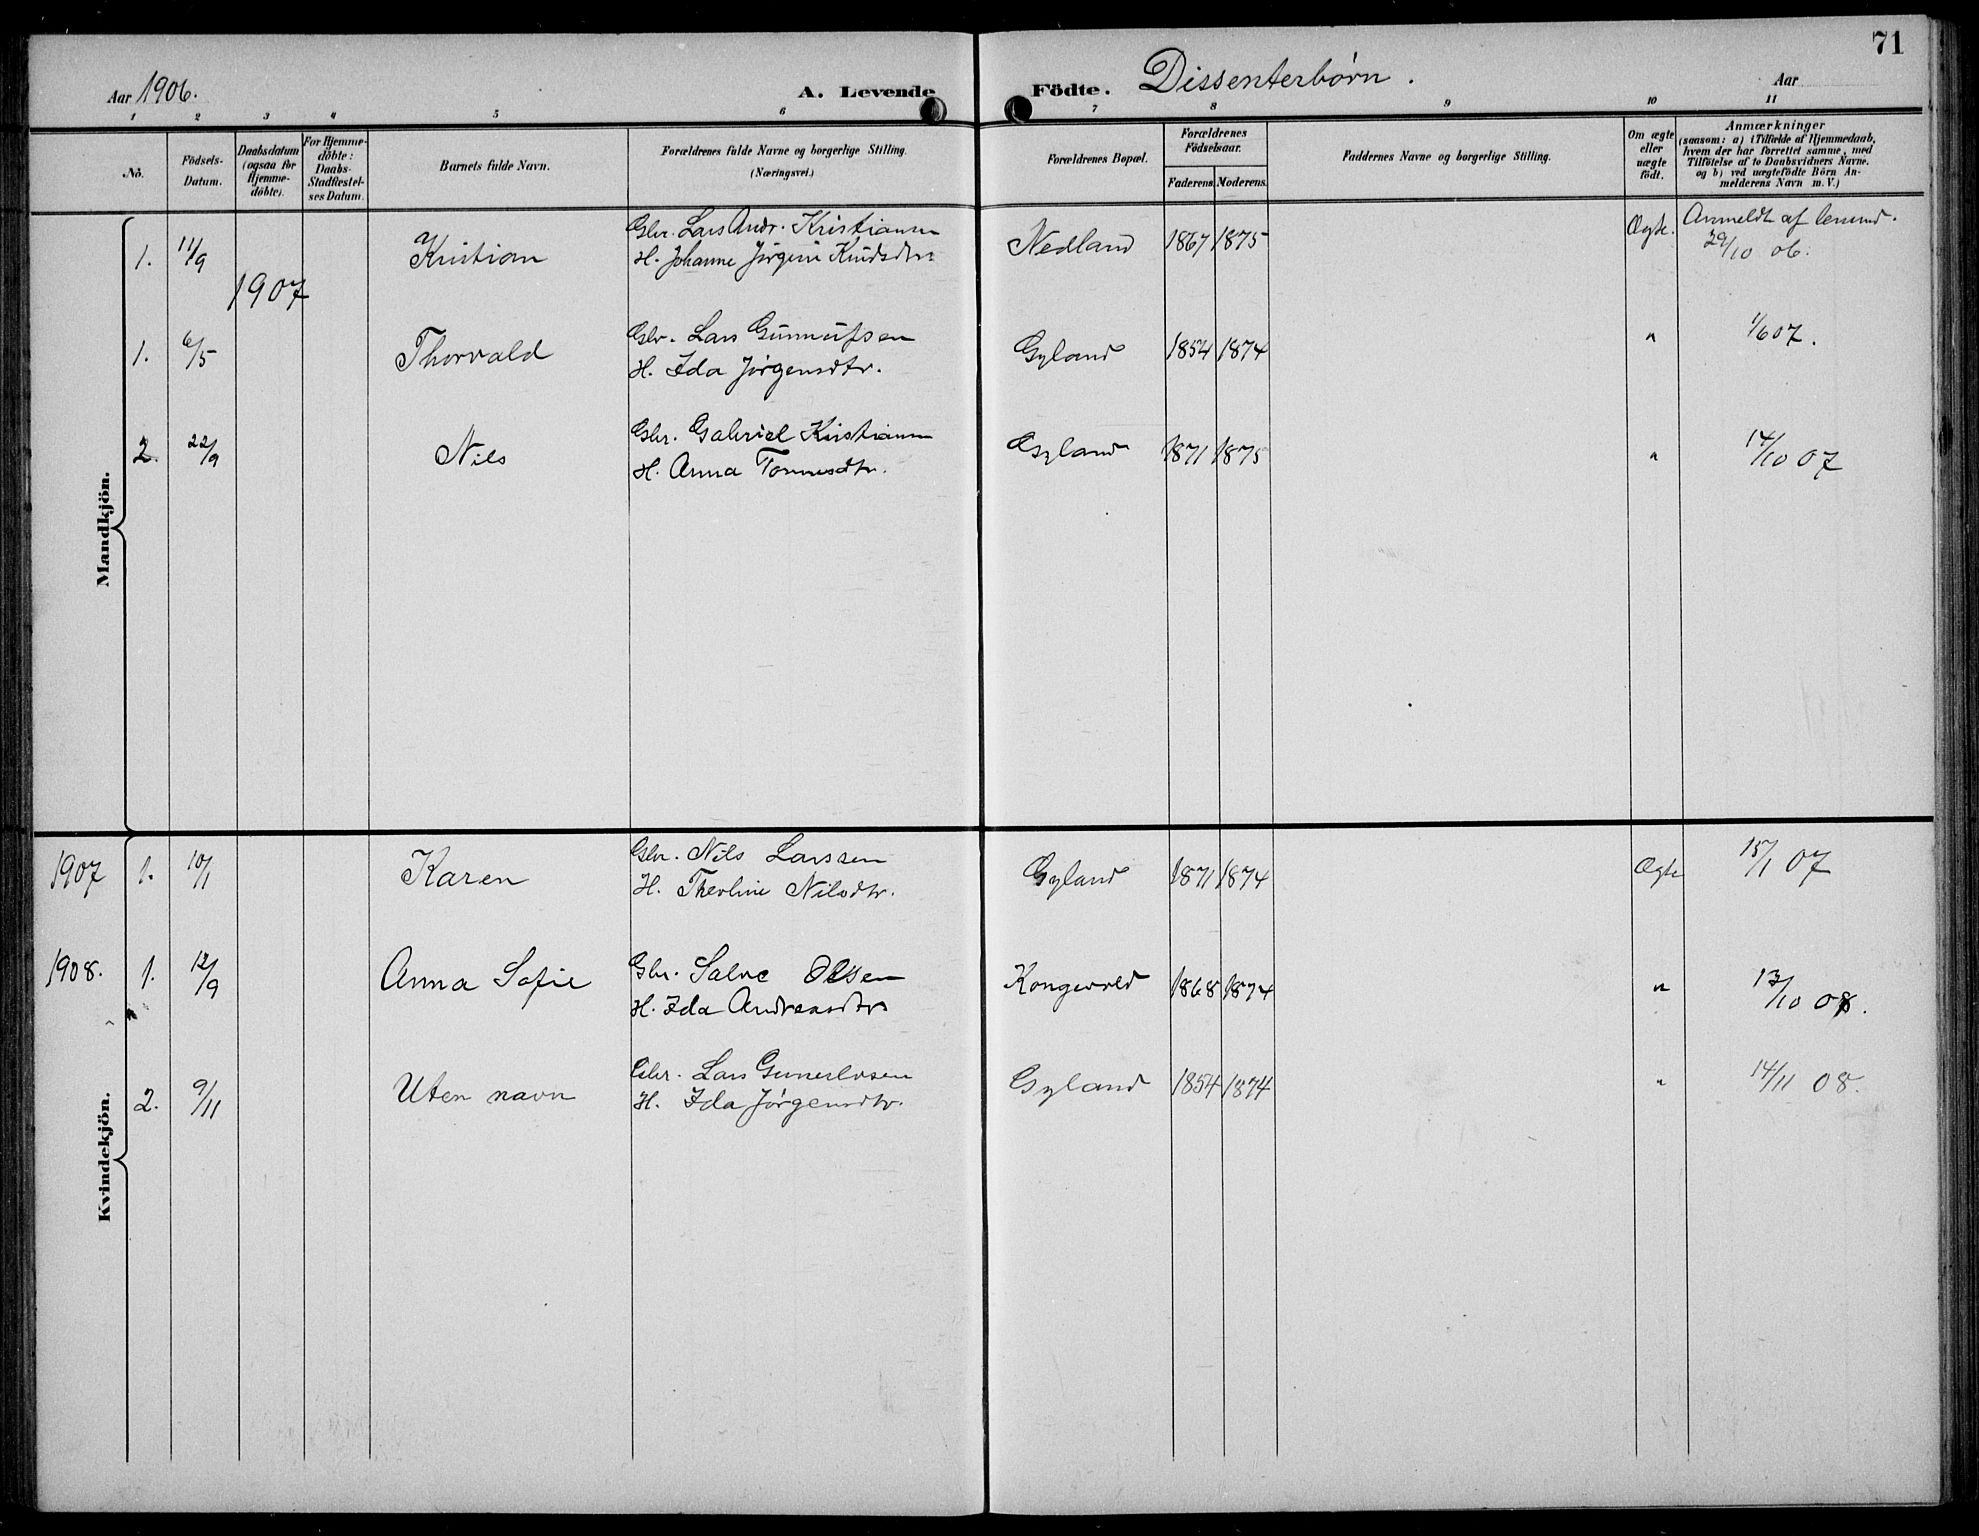 71
Aar 1906.
A. Levende
Födte. Dissenterbørn.
Aar
1 2 3 4 5 6 7 8 9 10 11
No.
Födsels-
Datum.
Daabsdatum
(ogsaa for
Hjemme-
döbte).
For Hjemme-
döbte:
Daabs-
Stadfæstel-
ses Datum.
Barnets fulde Navn.
Forældrenes fulde Navne og borgerlige Stilling.
(Næringsvei.)
Forældrenes Bopæl.
Forældrenes
Födselsaar.
Faderens. Moderens.
Faddernes Navne og borgerlige Stilling.
Om ægte
eller
uægte
födt.
Anmærkninger
(saasom: a) i Tilfælde af Hjemmedaab,
hvem der har forrettet samme, med
Tilföielse af to Daabsvidners Navne.
og b) ved uægtefödte Börn An-
melderens Navn m. V.)
Mandkjön.
1. 11/9 Kristian Gbr. Lars Andr. Kristiansen Nedland 1867 1875 Ægte. Anmeldt af
H. Johanne Jørgine Knudsdtr. 29/10 06.
1907
1. 6/5 Thorvald Gbr. Lars Gunnufsen Gyland 1854 1874 " 1/6 07.
H. Ida Jørgensdtr.
2. 22/9 Nils Gbr. Gabriel Kristiansen Gyland 1871 1875 " 14/10 07
H. Anna Tønnesdtr.
Kvindekjön.
1907 1. 10/1 Karen Gbr. Nils Larssen Gyland 1871 1874 Ægte 15/1 07
H. Nilsdtr.
1908. 1. 12/9 Anna Sofie Gbr. Salve Olsen Kongevold 1868 1874 " 13/10 08.
H. Ida Andreasdtr
2. 9/11 Uten navn Gbr. Lars Gyland 1854 1874 " 14/11 08.
H. Ida Jørgensdtr.